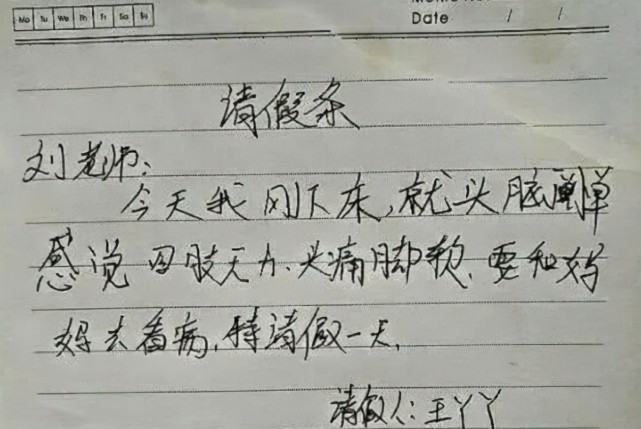 Mo Tu We Th Fr Sa Su
Date / /
请假条
刘老师:
今天我刚下床,就头脑圑惮
感觉四肢无力、头痛脚软,要和妈
妈去看病,特请假一天,
请假人:王丫丫